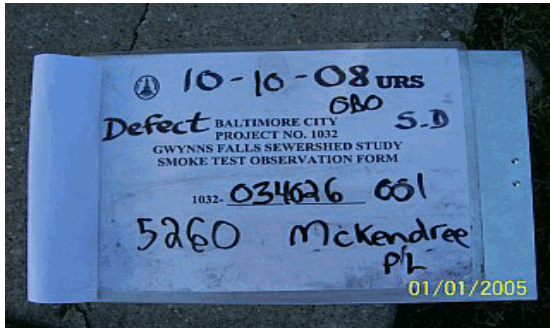 10-10-08 URS
GBO
Defect BALTIMORE CITY S-D
PROJECT NO. 1032
GWYNNS FALLS SEWERSHED STUDY
SMOKE TEST OBSERVATION FORM
1032- 034026 001
5260 McKendree
P/L
01/01/2005